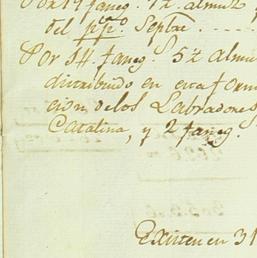 Por 19 faneg.s 7 z. almuz
del pp.do Septre. ....
Por 14. faneg. 5 z. almu
distribuido en esta form
cion de los Labradores
Catalina, y 2 faneg.
Existen en 31